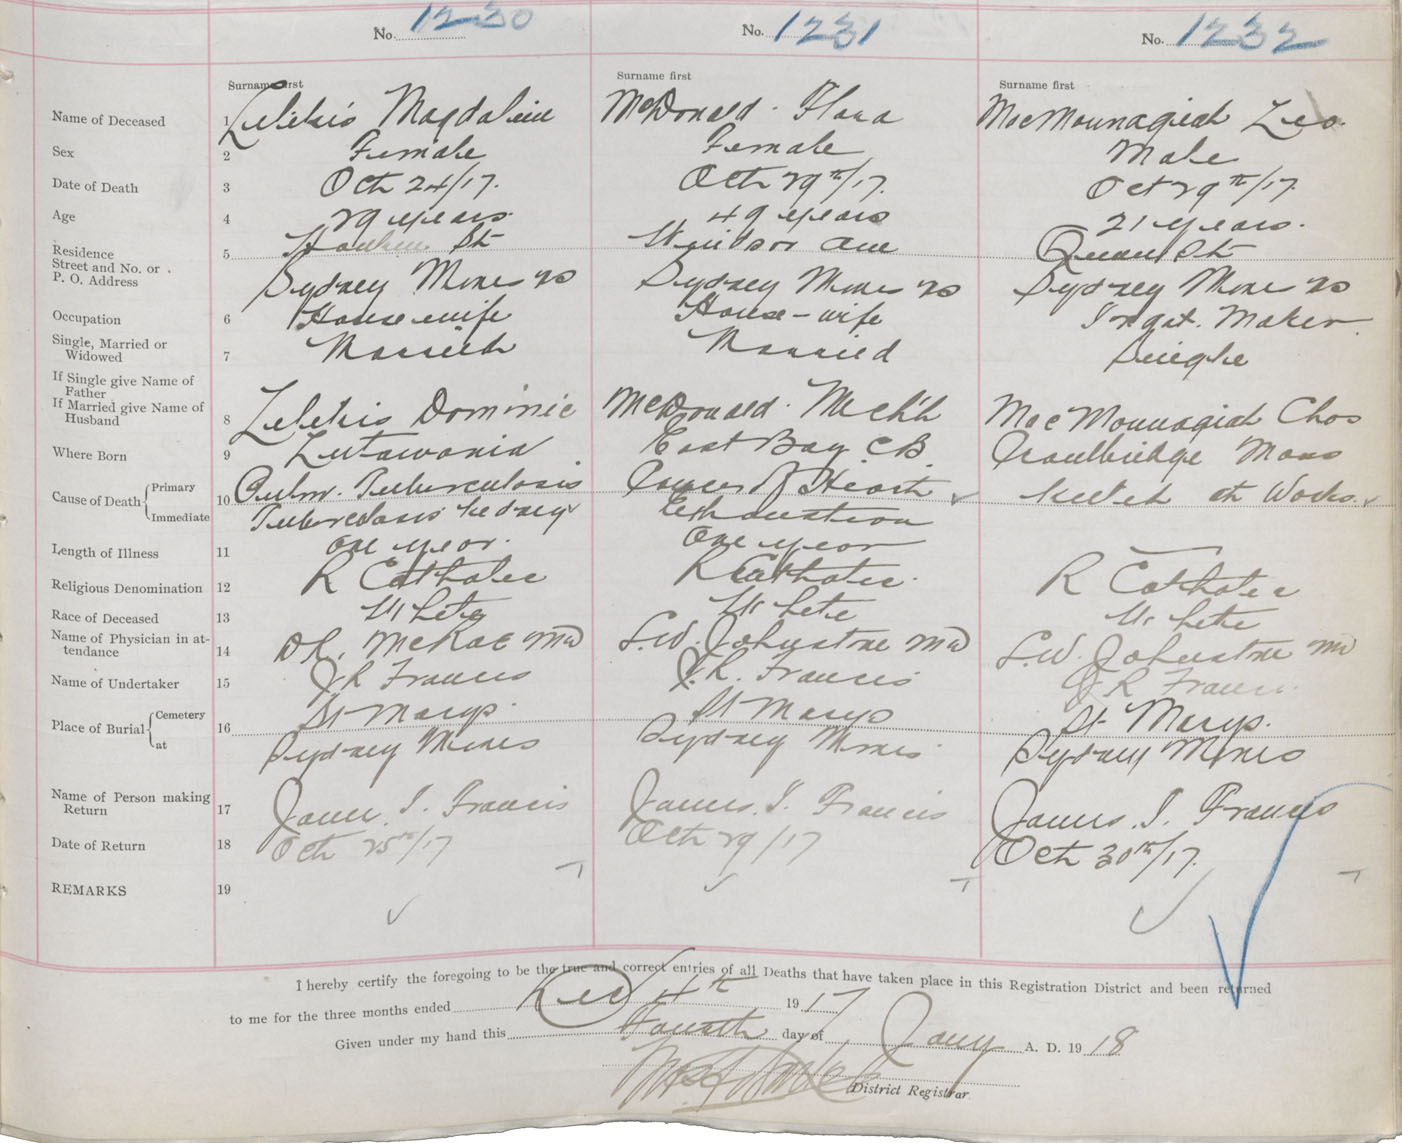 No. 1230 No. 1231 No. 1232
Surname first Surname first Surname first
Name of Deceased 1 Magdaline McDonald Flora MacMounagiah Leo.
Sex 2 Female Female Male
Date of Death 3 Oct 24/17. Oct 29th/17. Oct 29th/17.
Age 4 29 years 49 years 21 years.
Residence
Street and No. or
P. O. Address
5 St Windsor ave Queen St
Sydney Mines NS Sydney Mines NS Sydney Mines NS
Occupation 6 Housewife House-wife Ingot. Maker.
Single, Married or
Widowed
7 Married Married Single
If Single give Name of
Father
If Married give Name of
Husband
8 Dominic McDonald. Mich'l MacMounagiah Chas
Where Born 9 East Bay C.B. Mass
Cause of Death { Primary 10 Pulm. Tuberculosis Cancer of Heart Killed at Works.
Immediate Tuberculosis kidney Exhaustion
Length of Illness 11 one year. One year —
Religious Denomination 12 R Catholic R Catholic. R Catholic
Race of Deceased 13 White White White
Name of Physician in at-
tendance
14 DR. McRae MD L.W. Johnstone MD L.W. Johnstone MD
Name of Undertaker 15 J R Francis J. R. Francis J R Francis
Place of Burial { Cemetery 16 St Marys. St Marys St Marys.
at Sydney Mines Sydney Mines Sydney Mines
Name of Person making
Return
17 James. I. Francis James. I. Francis James. I. Francis
Date of Return 18 Oct 25th/17 Oct 29/17 Oct 30th/17.
REMARKS 19
I hereby certify the foregoing to be the true and correct entries of all Deaths that have taken place in this Registration District and been returned
to me for the three months ended Dec 4th 1917
Given under my hand this Fourth day of Jany A. D. 1918
District Registrar